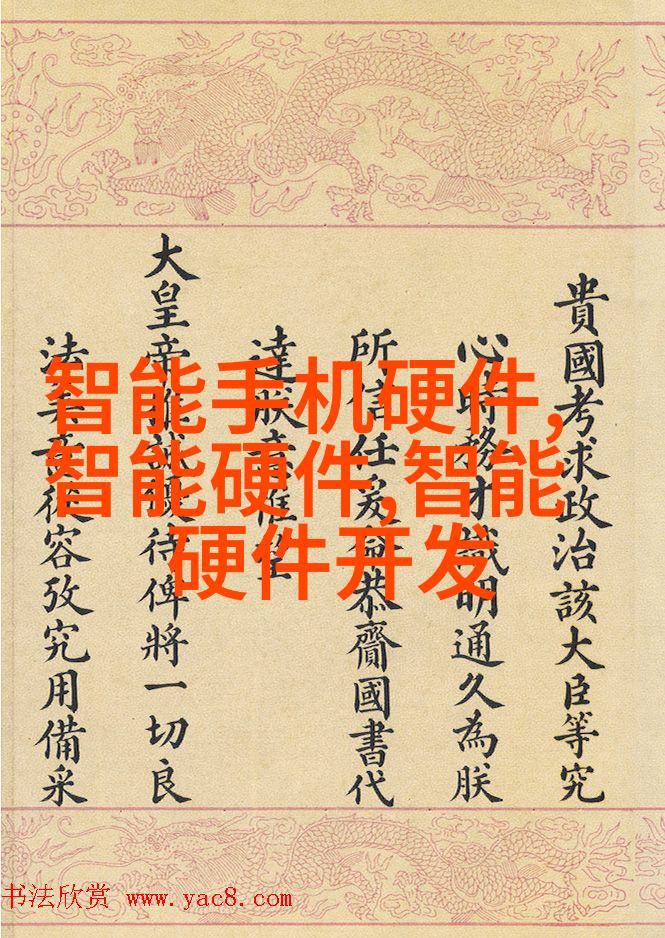 貴國考求政治該大臣等究
心時務才識明通久為朕
所信任爰命恭齎國書代
達朕意惟望
大皇帝推誠待俾將一切良
法美意從容攷究用備采
智能手机硬件,
智能硬件,智能
硬件开发
书法欣赏 www.yac8.com